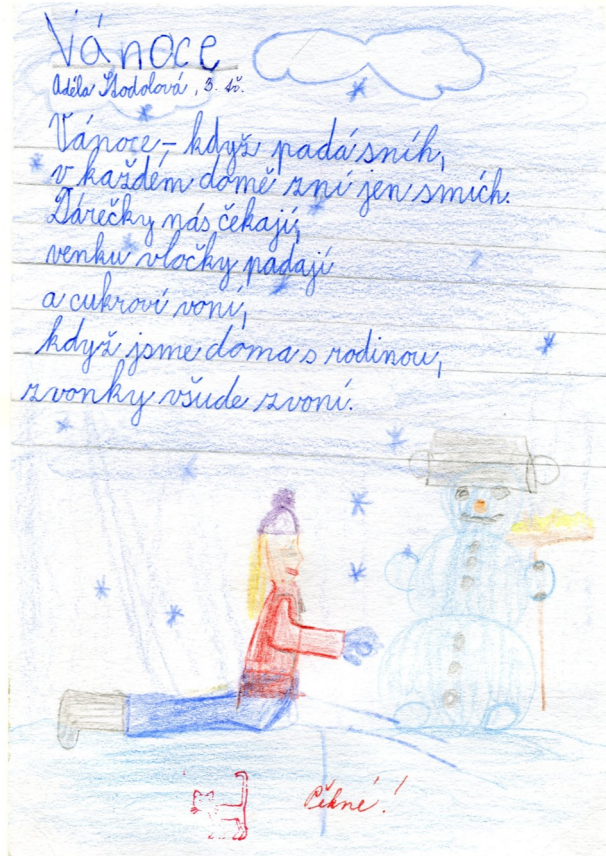 Vánoce
Adéla Stodolová, 3. tř.
Vánoce – když padá sníh,
v každém domě zní jen smích.
Dárečky nás čekají,
venku vločky padají
a cukroví voní,
když jsme doma s rodinou,
zvonky všude zvoní.
Pěkné!